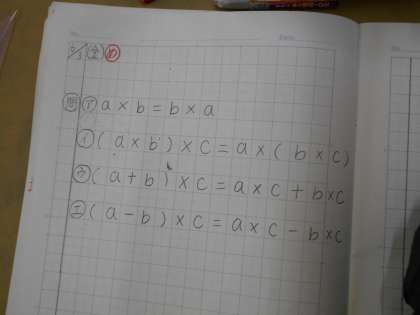 ㋐ a × b = b × a
㋑ ( a × b ) × c = a × ( b × c )
㋒ ( a + b ) × c = a × c + b × c
㋓ ( a − b ) × c = a × c − b × c